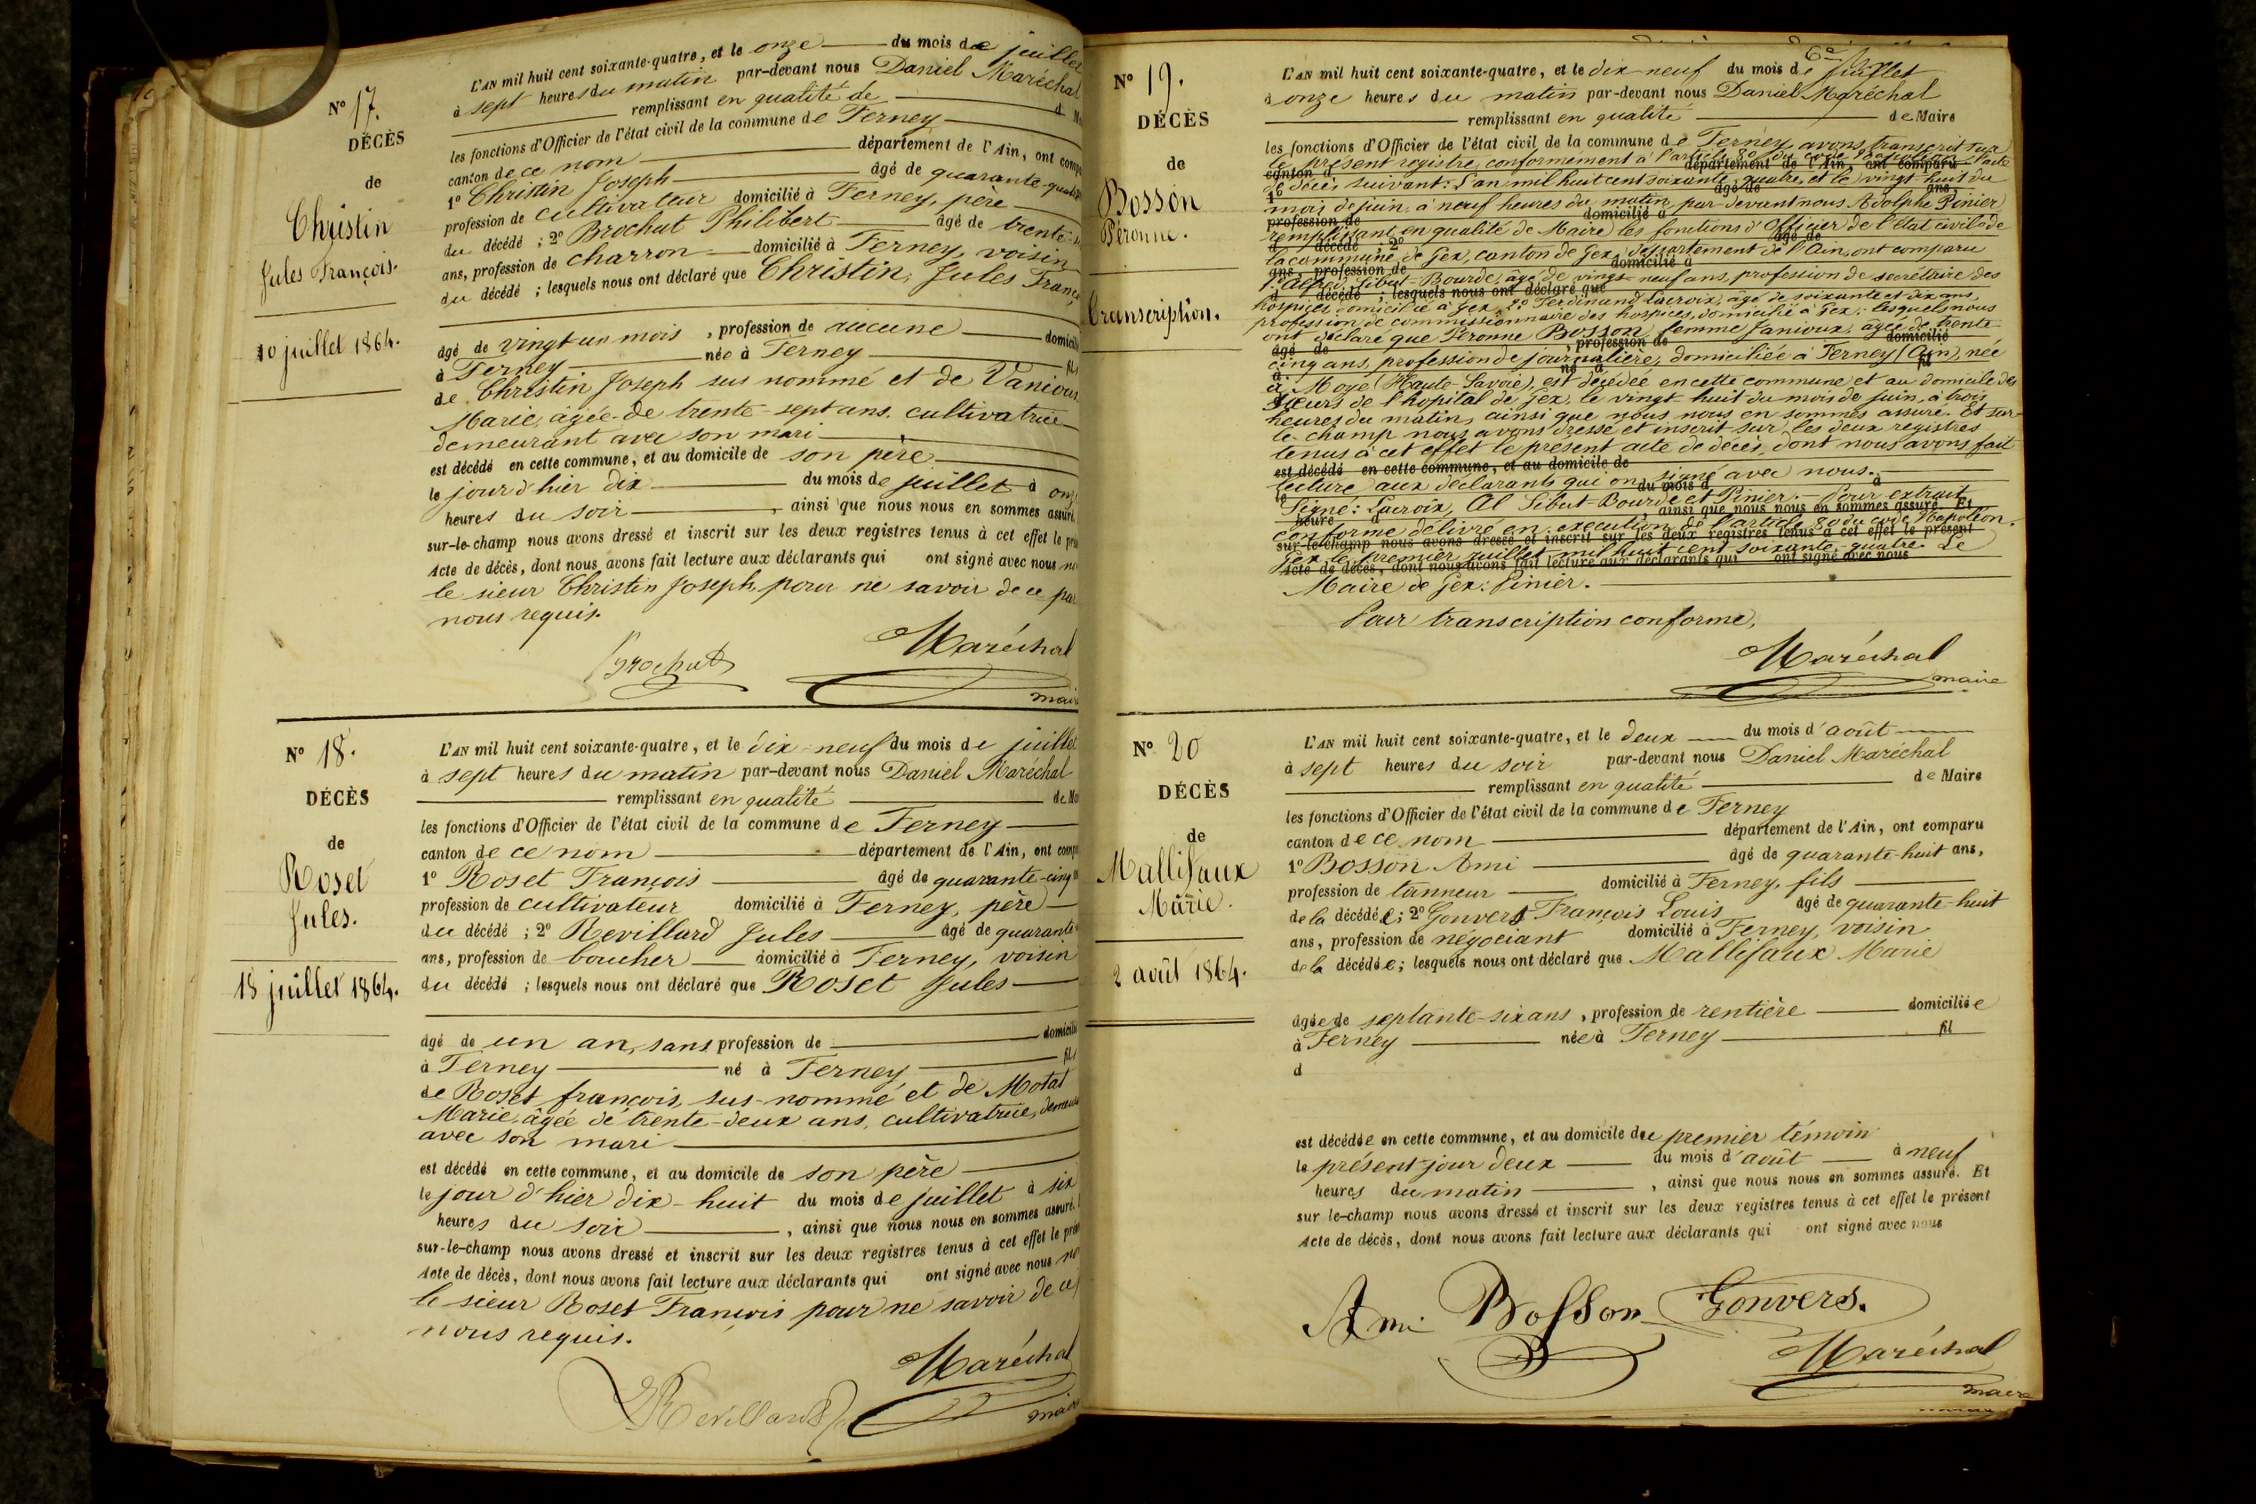 N° 17.
DÉCÈS
de
Christin
Jules François.
10 juillet 1864.
L'AN mil huit cent soixante-quatre, et le onze du mois de juillet
à sept heures du matin par-devant nous Daniel Maréchal
remplissant en qualité de
les fonctions d'Officier de l'état civil de la commune de Ferney
canton de ce nom département de l'Ain, ont
1° Christin Joseph âgé de quarante
profession de cultivateur domicilié à Ferney, père
du décédé ; 2° Brochut Philibert âgé de trente
ans, profession de charron domicilié à Ferney, voisin
du décédé ; lesquels nous ont déclaré que Christin, Jules
âgé de vingt un mois, profession de aucune
à Ferney née à Ferney
de Christin Joseph sus nommé et de
Marie, âgée de trente-sept ans, cultivatrice
demeurant avec son mari
est décédé en cette commune, et au domicile de son père
le jour d'hier dix du mois de juillet à
heures du soir, ainsi que nous nous en sommes assuré.
sur-le-champ nous avons dressé et inscrit sur les deux registres tenus à cet effet le
Acte de décès, dont nous avons fait lecture aux déclarants qui ont signé avec nous
le sieur Christin Joseph, pour ne savoir de ce
nous requis.
Brochut
Maréchal
maire
N° 18.
DÉCÈS
de
Roset
Jules.
18 juillet 1864.
L'AN mil huit cent soixante-quatre, et le dix-neuf du mois de juillet
à sept heures du matin par-devant nous Daniel Maréchal
remplissant en qualité de
les fonctions d'Officier de l'état civil de la commune de Ferney
canton de ce nom département de l'Ain, ont
1° Roset François âgé de quarante-cinq
profession de cultivateur domicilié à Ferney, père
du décédé ; 2° Revillard Jules âgé de quarante
ans, profession de boucher domicilié à Ferney, voisin
du décédé ; lesquels nous ont déclaré que Roset Jules
âgé de un an, sans profession de
à Ferney né à Ferney fils
de Roset françois, sus-nommé et de Motat
Marie, âgée de trente-deux ans, cultivatrice,
avec son mari
est décédé en cette commune, et au domicile de son père
le jour d'hier dix-huit du mois de juillet à six
heures du soir, ainsi que nous nous en sommes assuré.
sur-le-champ nous avons dressé et inscrit sur les deux registres tenus à cet effet le
Acte de décès, dont nous avons fait lecture aux déclarants qui ont signé avec nous
le sieur Roset François pour ne savoir de ce
nous requis.
Maréchal
JRevillard
maire
N° 19.
DÉCÈS
de
Bosson
Péronne.
Transcription.
L'AN mil huit cent soixante-quatre, et le dix neuf du mois de juillet
à onze heures du matin par-devant nous Daniel Maréchal
remplissant en qualité de Maire
les fonctions d'Officier de l'état civil de la commune de Ferney, avons transcrit sur
le présent registre, conformément à l'article 80 du code Napoléon l'acte
canton d département de l'Ain, ont comparu
de décès suivant: L'an mil huit cent soixante-quatre, et le vingt huit du
1° âgé de ans,
mois de juin, à neuf heures du matin par-devant nous Adolphe Pinier
profession de domicilié à
remplissant en qualité de Maire les fonctions d'Officier de l'état civil de
d décédé ; 2° âgé de
la commune de Gex, canton de Gex, département de l'Ain, ont comparu
ans, profession de domicilié à
1° Alfred Sibut-Bourde, âgé de vingt-neuf ans, profession de secrétaire des
d décédé ; lesquels nous ont déclaré que
hospices, domicilié à Gex, 2° Ferdinand Lacroix, âgé de soixante et dix ans,
profession de commissionnaire des hospices, domicilié à Gex; lesquels nous
ont déclaré que Péronne Bosson, femme Janioux, âgée de trente
âgé de , profession de domicilié
cinq ans, profession de journalière, domiciliée à Ferney (Ain), née
à né à fil
à Moye (Haute-Savoie), est décédée en cette commune et au domicile des
Sœurs de l'hôpital de Gex, le vingt huit du mois de juin, à trois
heures du matin, ainsi que nous nous en sommes assuré. Et sur-
le-champ nous avons dressé et inscrit sur les deux registres
tenus à cet effet le présent acte de décès, dont nous avons fait
est décédé en cette commune, et au domicile de
lecture aux déclarants qui ont signé avec nous.
le du mois d à
Signé: Lacroix, Al Sibut-Bourde et Pinier. — Pour extrait
heure d ainsi que nous nous en sommes assuré. Et
conforme délivré en exécution de l'article 80 du code Napoléon.
sur-le-champ nous avons dressé et inscrit sur les deux registres tenus à cet effet le présent
Gex, le premier juillet mil huit cent soixante-quatre. Le
Acte de décès, dont nous avons fait lecture aux déclarants qui ont signé avec nous
Maire de Gex: Pinier.
Pour transcription conforme,
Maréchal
maire
N° 20
DÉCÈS
de
Mallifaux
Marie.
2 août 1864.
L'AN mil huit cent soixante-quatre, et le deux du mois d'août
à sept heures du soir par-devant nous Daniel Maréchal
remplissant en qualité de Maire
les fonctions d'Officier de l'état civil de la commune de Ferney
canton de ce nom département de l'Ain, ont comparu
1° Bosson Ami âgé de quarante-huit ans,
profession de tanneur domicilié à Ferney, fils
de la décédée ; 2° Gonvers François Louis âgé de quarante-huit
ans, profession de négociant domicilié à Ferney, voisin
de la décédée ; lesquels nous ont déclaré que Mallifaux Marie
âgée de septante-six ans, profession de rentière domiciliée
à Ferney née à Ferney fil
d
est décédée en cette commune, et au domicile du premier témoin
le présent jour deux du mois d'août à neuf
heures du matin, ainsi que nous nous en sommes assuré. Et
sur le-champ nous avons dressé et inscrit sur les deux registres tenus à cet effet le présent
Acte de décès, dont nous avons fait lecture aux déclarants qui ont signé avec nous
Ami Bosson Gonvers.
Maréchal
maire